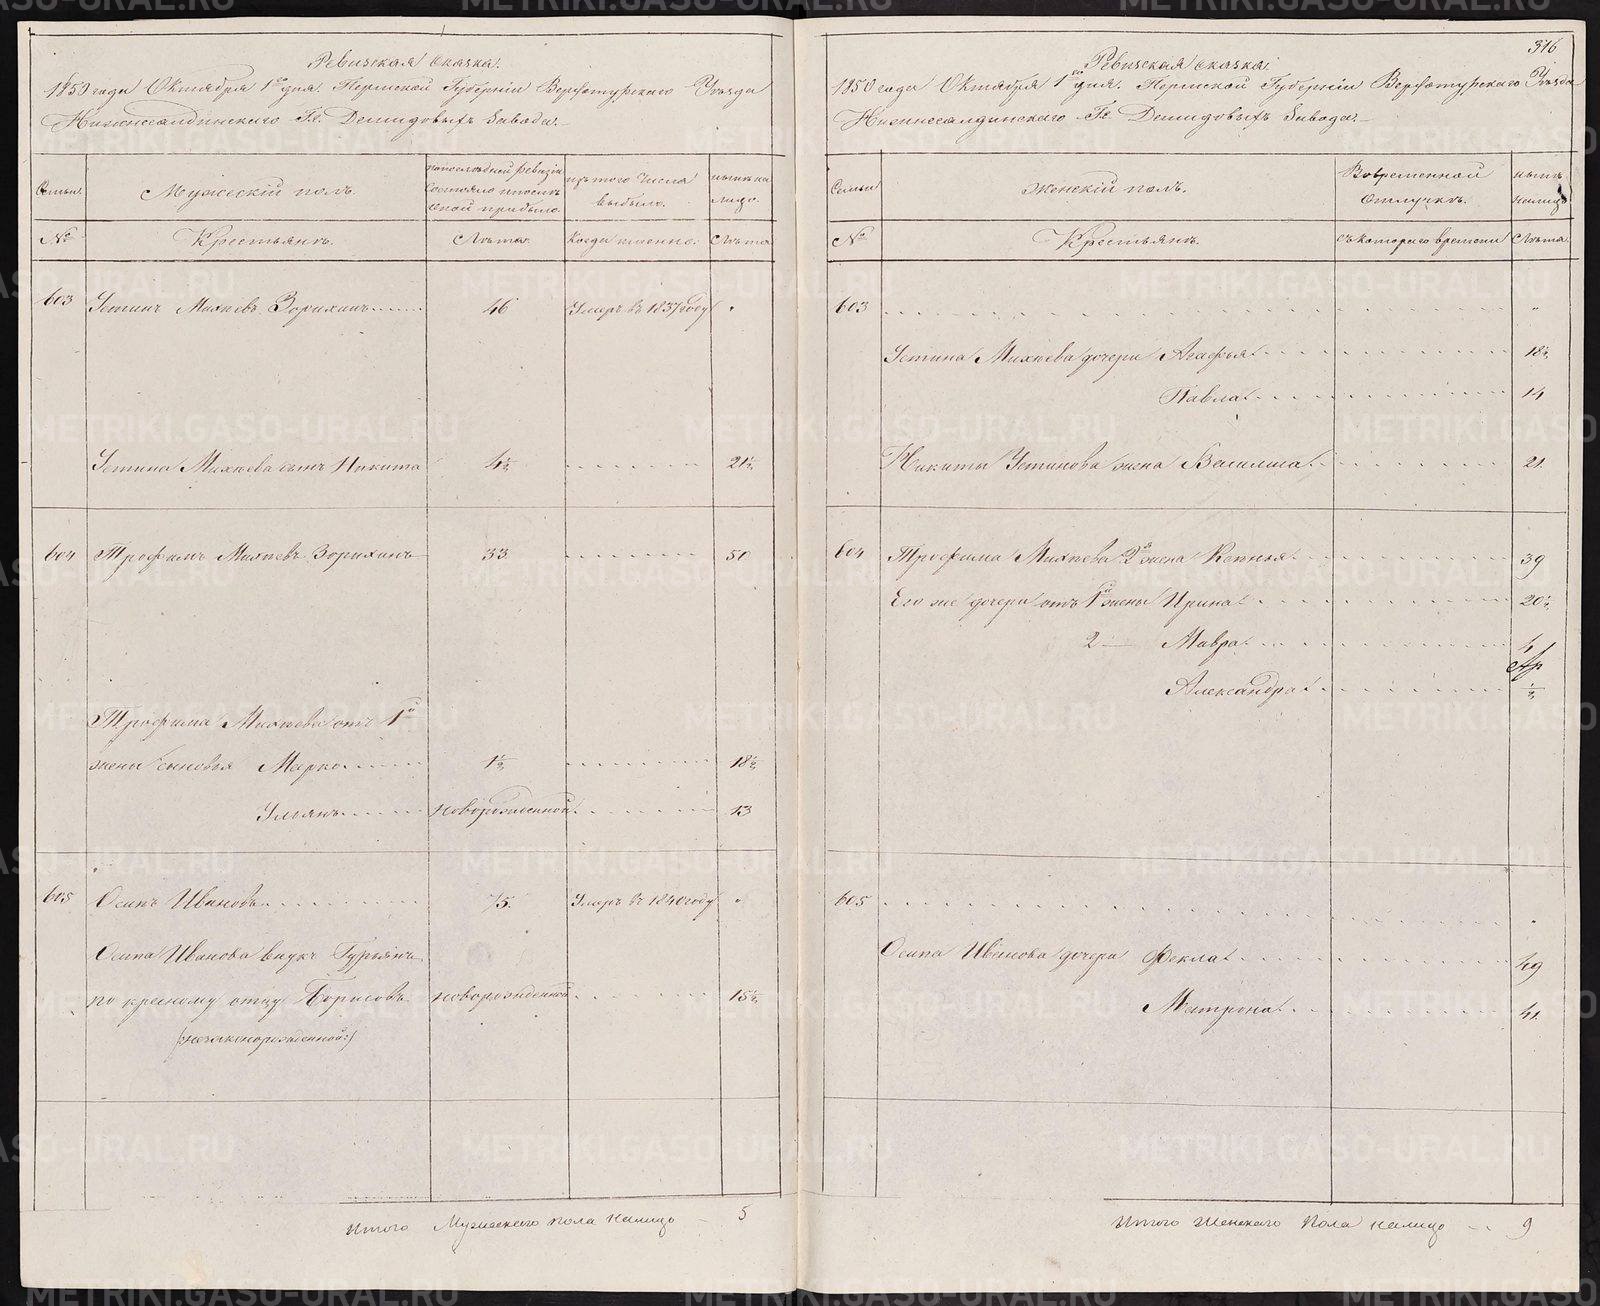 Ревизская сказка.
1850 года Октября 1го дня. Пермской Губерніи Верхотурскаго Уѣзда
Нижнесалдинскаго Гг. Демидовыхъ Завода.
Семьи Мужескій полъ.
№ Крестьянъ. Лѣта. Когда именно. Лѣта
603 Устинъ Михѣевъ Зорихинъ 46 Умеръ въ 1837 году "
Устина Михѣева сынъ Никита 4½ 21½
604 Трофимъ Михѣевъ Зорихинъ 33 50
Трофима Михѣева отъ 1й
жены сыновья Марко 1½ 18½
Ульянъ новорожденной 13
605 Осипъ Ивановъ 75. Умеръ въ 1840 году "
Осипа Иванова внукъ Гурьянъ
по кресному отцу Борисовъ новорожденной 15½
(незаконорожденной)
Итого Мужескаго пола налицо 5
316
Ревизская сказка.
1850 года Октября 1го дня. Пермской Губерніи Верхотурскаго Уѣзда
Нижнесалдинскаго Гг. Демидовыхъ Завода.
Семьи Женскій полъ. Вовременной отлучкѣ. нынѣ налицо
№ Крестьянъ. съ котораго времени Лѣта
603 "
Устина Михѣева дочери Агафья 18½
Павла 14
Никиты Устинова жена Василиса 21
604 Трофима Михѣева 2я жена Ксенья 39
Его же дочери отъ 1й жены Ирина 20½
2 — Мавра 4
Александра ½
605 "
Осипа Иванова дочери Фекла 49
Матрена 41
Итого Женскаго Пола налицо 9
METRIKI.GASO-URAL.RU